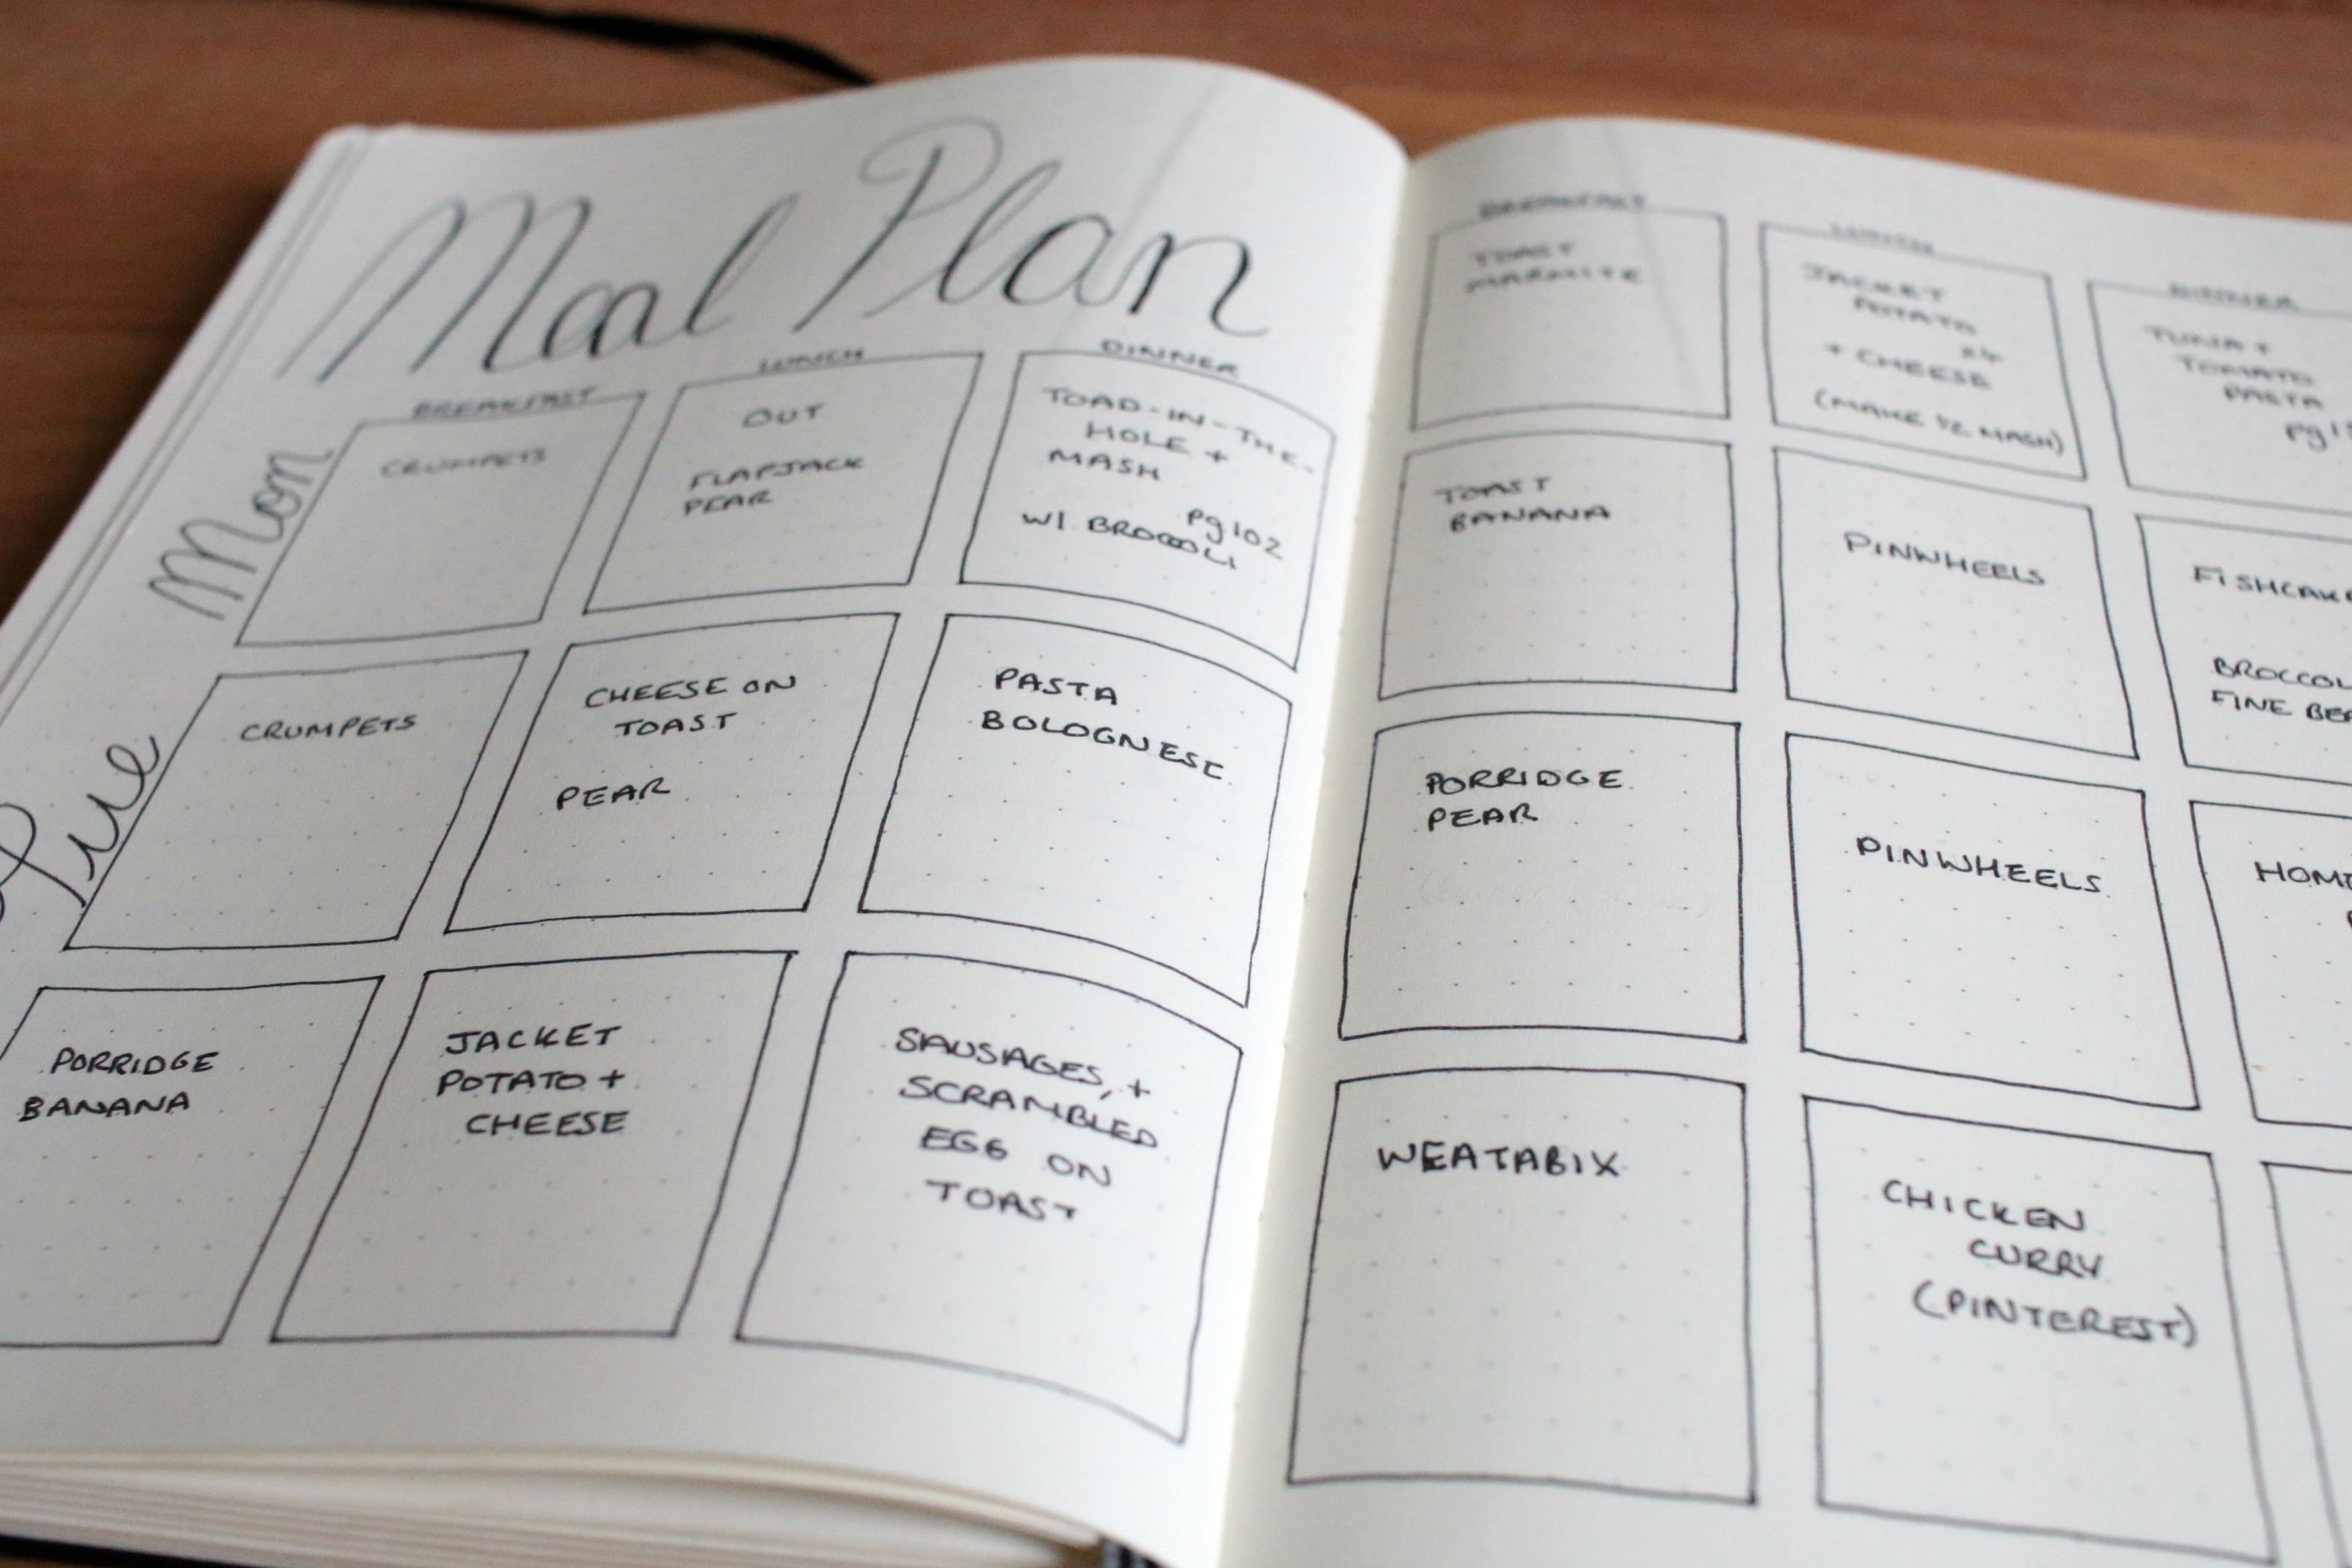 Meal Plan
BREAKFAST
LUNCH
DINNER
Mon
CRUMPETS
OUT
FLAPJACK
PEAR
TOAD-IN-THE-
HOLE +
MASH
pg 102
W/ BROCCOLI
Tue
CRUMPETS
CHEESE ON
TOAST
PEAR
PASTA
BOLOGNESE
PORRIDGE
BANANA
JACKET
POTATO +
CHEESE
SAUSAGES, +
SCRAMBLED
EGG ON
TOAST
BREAKFAST
LUNCH
DINNER
TOAST
MARMITE
JACKET
POTATO
+ CHEESE
(MAKE 1/2 MASH)
TUNA +
TOMATO
PASTA
TOAST
BANANA
PINWHEELS
PORRIDGE
PEAR
PINWHEELS
WEATABIX
CHICKEN
CURRY
(PINTEREST)
FINE